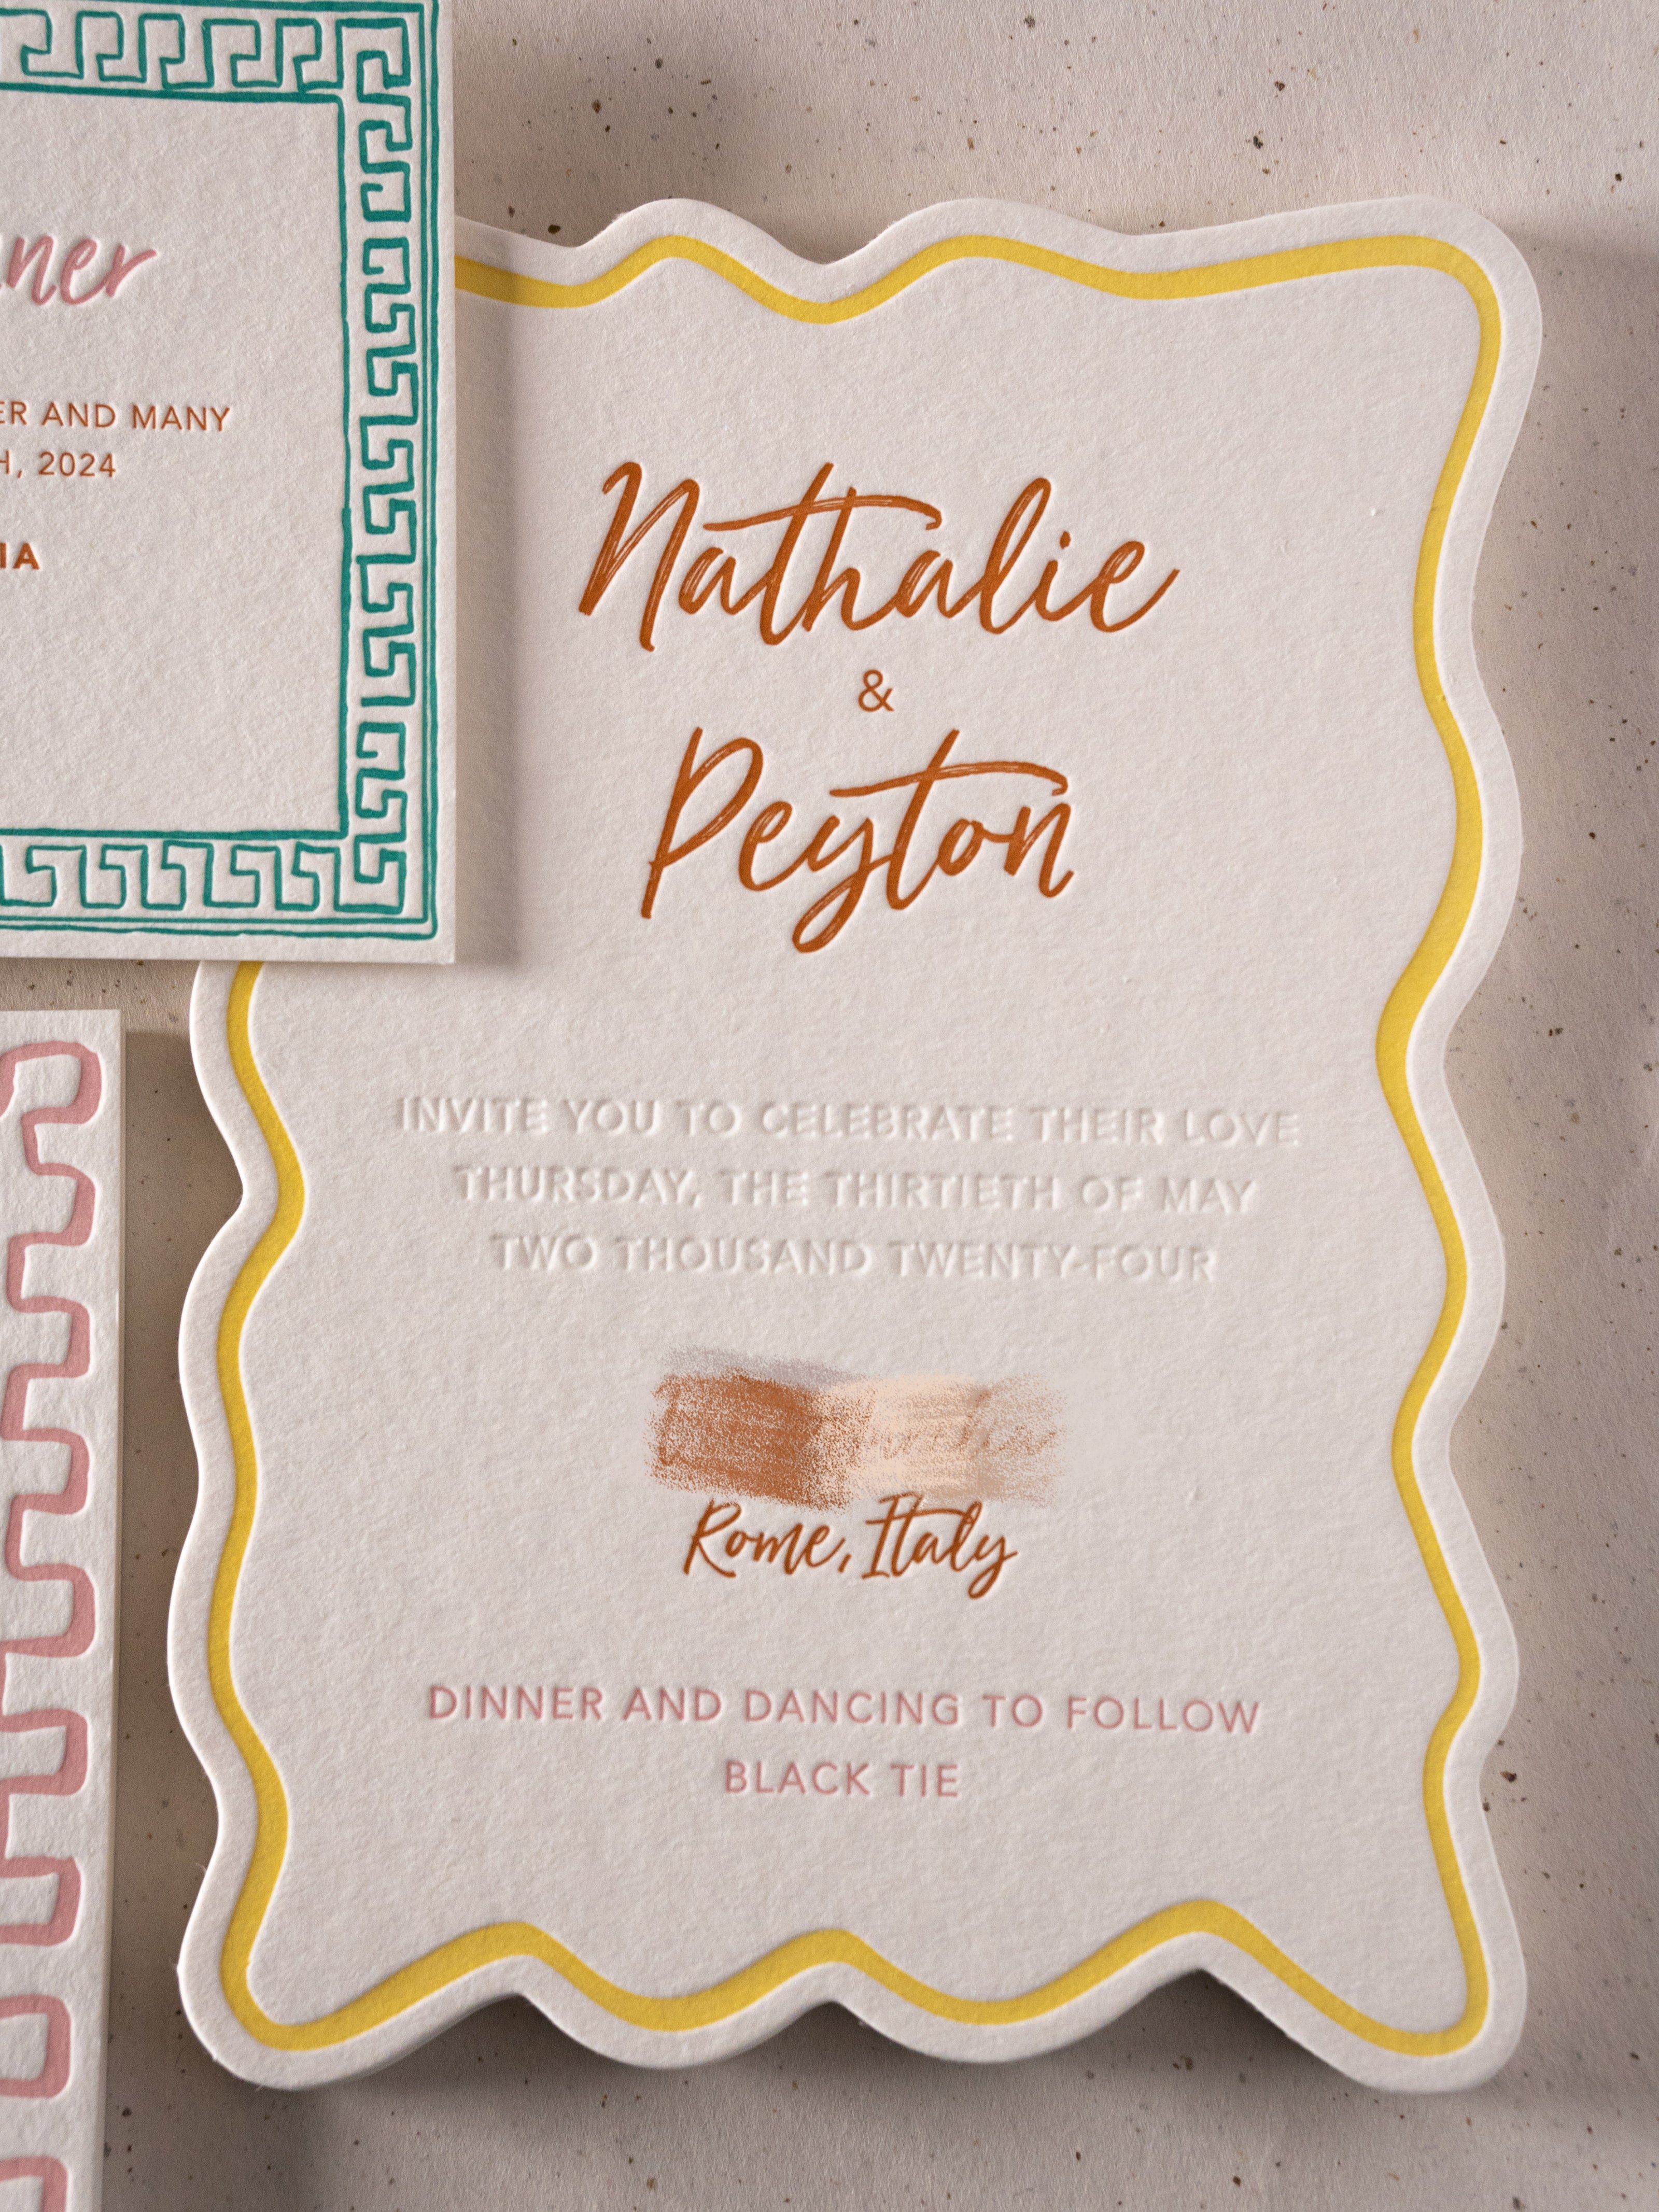 ner
ER AND MANY
H, 2024
IA
Nathalie
&
Peyton
INVITE YOU TO CELEBRATE THEIR LOVE
THURSDAY, THE THIRTIETH OF MAY
TWO THOUSAND TWENTY-FOUR
Rome, Italy
DINNER AND DANCING TO FOLLOW
BLACK TIE